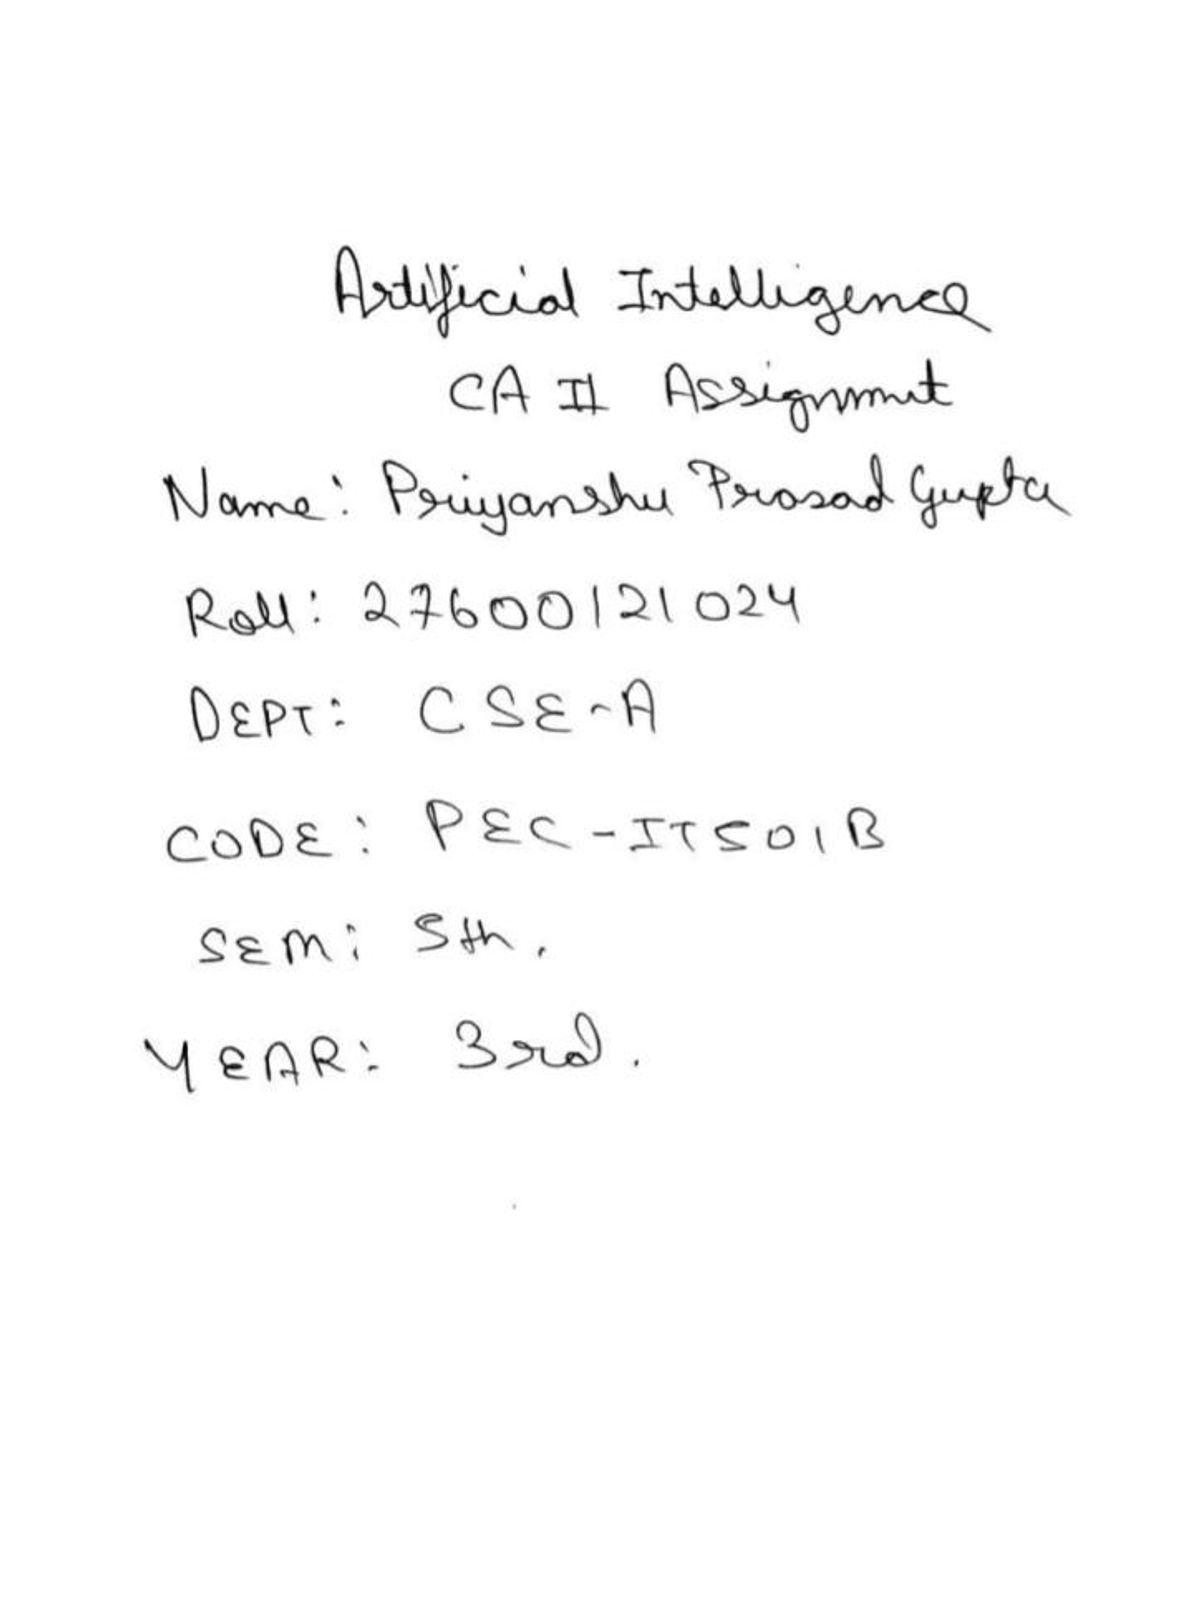 Artificial Intelligence
CA II Assignmnt
Name: Priyanshu Prosad Gupta
Roll: 27600121024
DEPT: CSE-A
CODE: PEC-IT501B
SEM: 5th.
YEAR: 3rd.